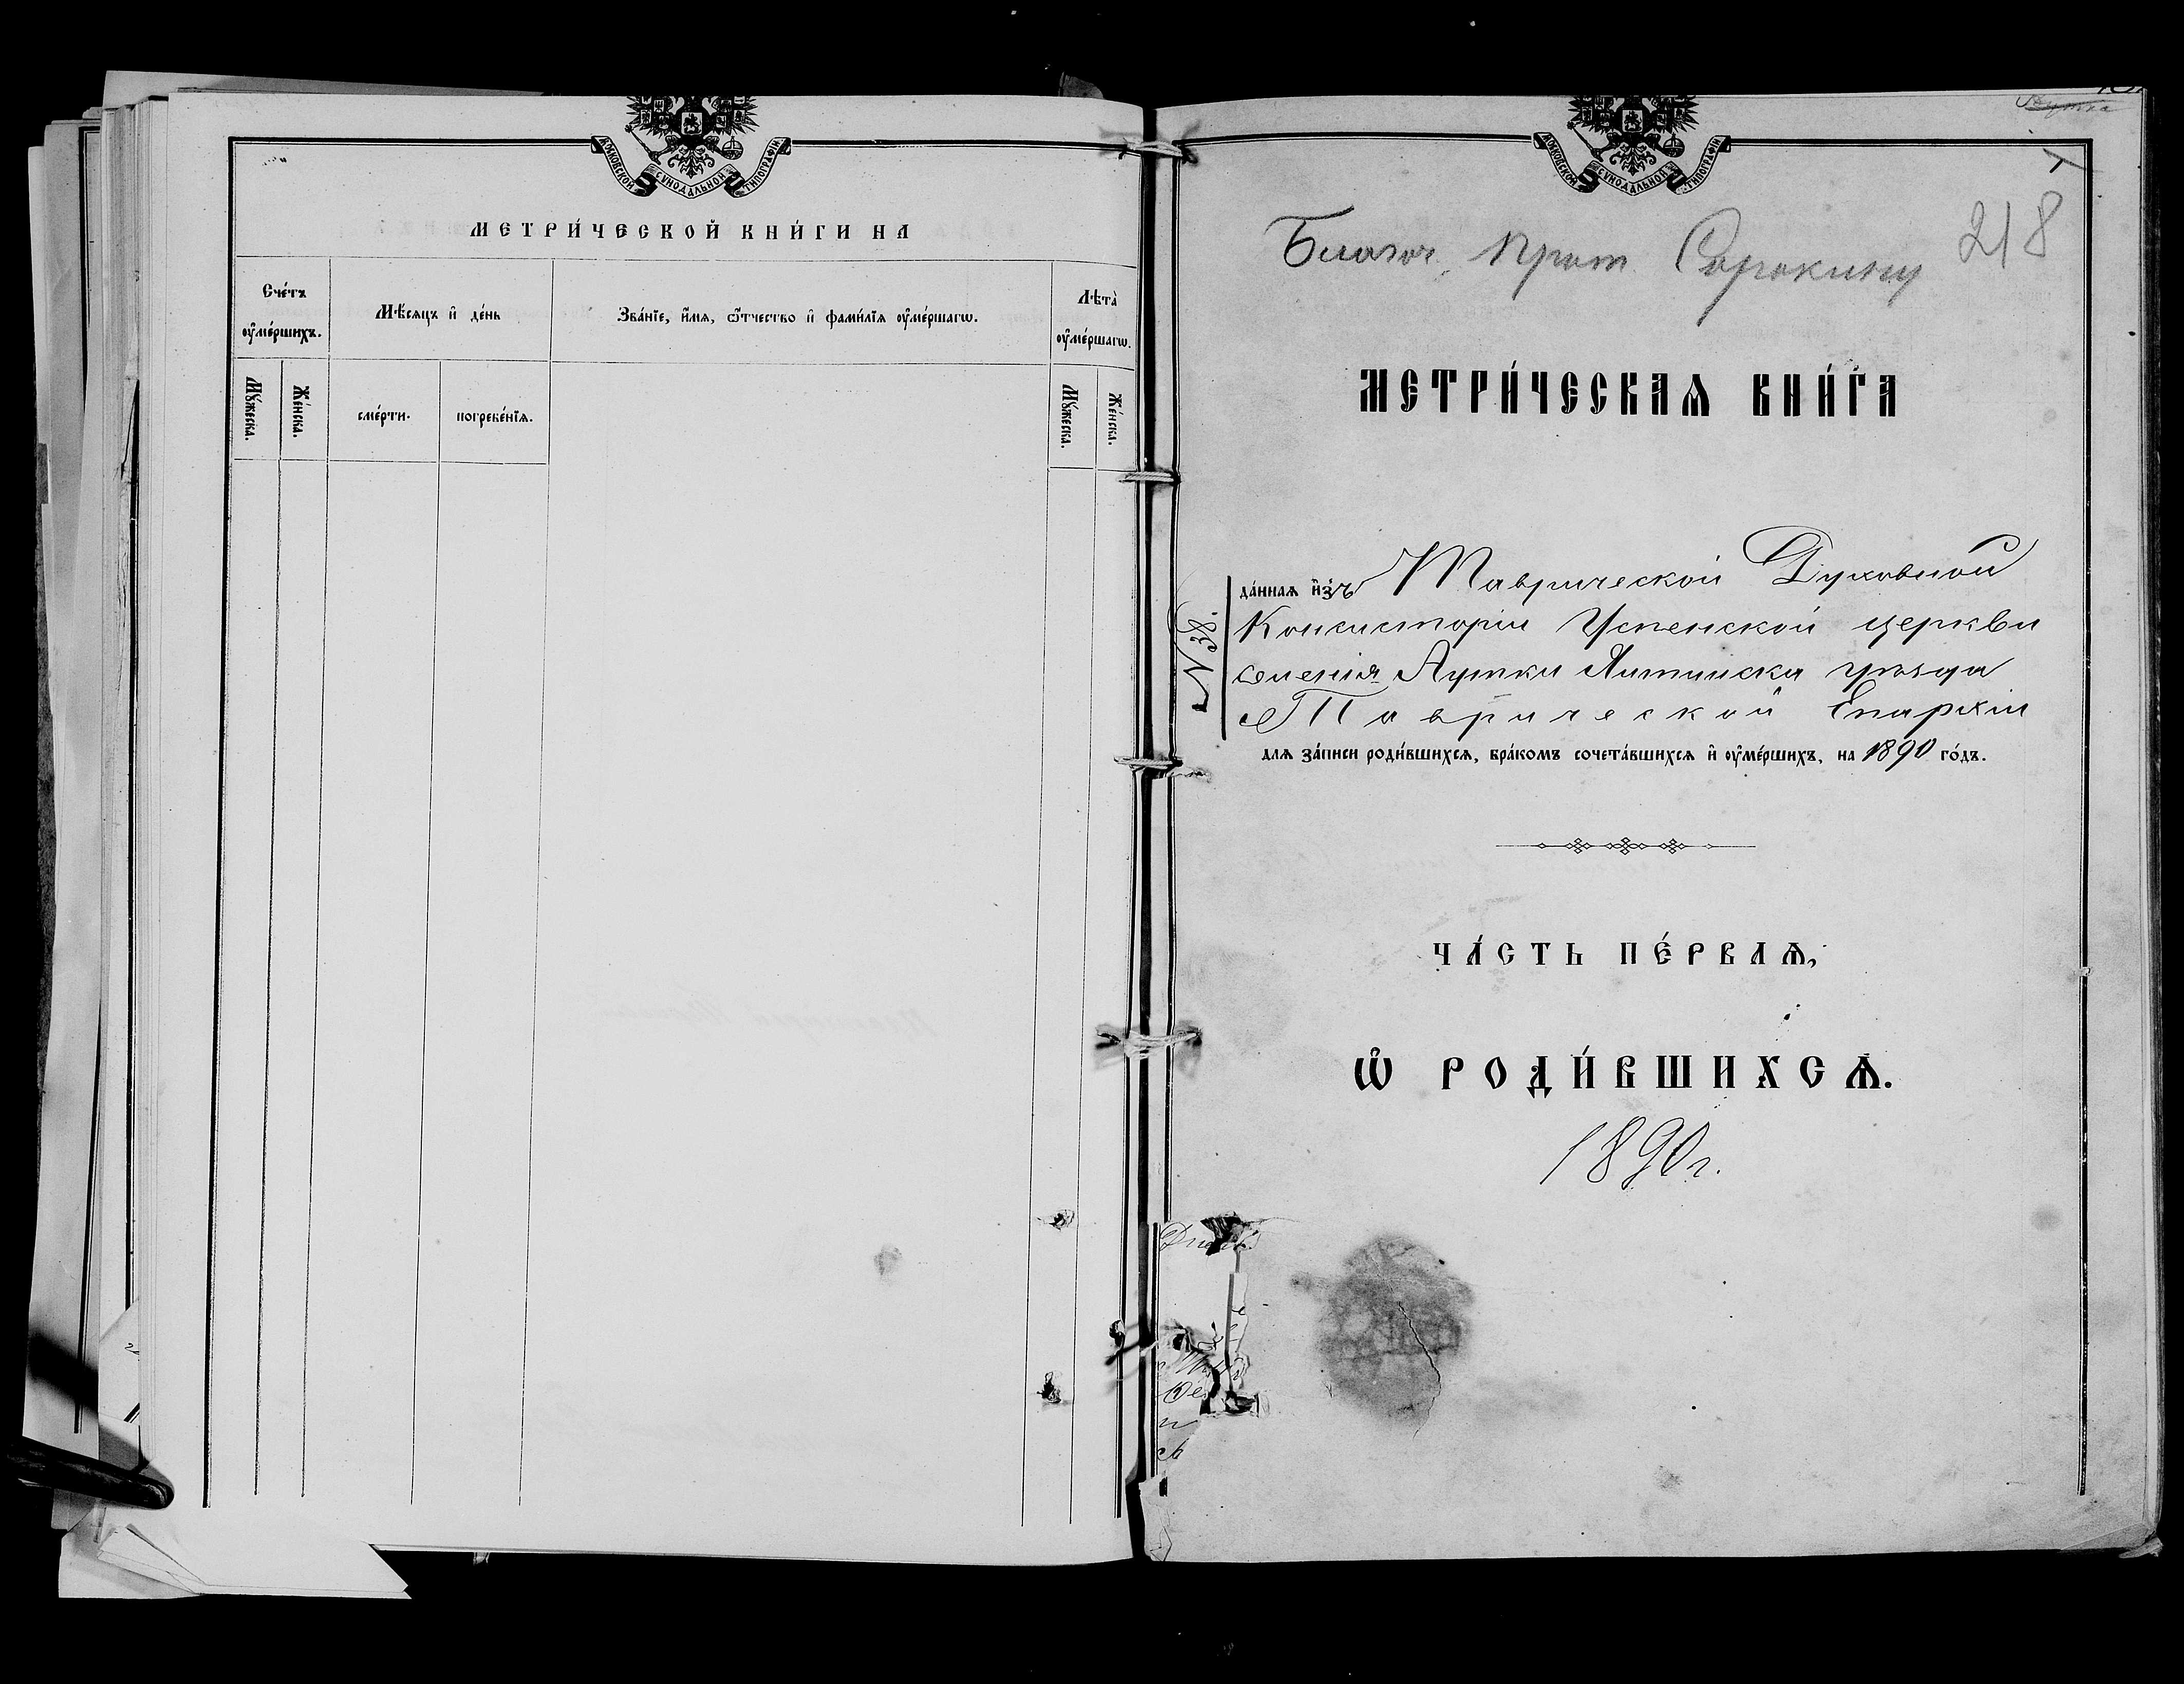 МОСКОВСКОЙ СѴНОДАЛЬНОЙ ТИПОГРАФІИ
МЕТРИ́ЧЕСКОЙ КНИ́ГИ НА
Сче́тъ ᲂу҆ме́ршихъ.
Мѣ́сяцъ и҆ де́нь
Зва́нїе, и҆́мя, ѻ҆́тчество и҆ фами́лїя ᲂу҆ме́ршагѡ.
Лѣ́та ᲂу҆ме́ршагѡ.
Му́жеска.
Же́нска.
сме́рти.
погребе́нїя.
Му́жеска.
Же́нска.
МОСКОВСКОЙ СѴНОДАЛЬНОЙ ТИПОГРАФІИ
218
Благоч. Прот. Сорокину
МЕТРИ́ЧЕСКАѦ КНИ́ГА
№ 38.
да́ннаѧ и҆зъ Таврической Духовной
Консисторіи Успенской церкви
селенія Аутки Ялтинска уѣзда
Таврической Епархіи
для за́писи роди́вшихсѧ, бра́комъ сочета́вшихсѧ и҆ ᲂу҆ме́ршихъ, на 1890 го́дъ.
ЧА́СТЬ ПЕ́РВАѦ,
Ѡ҆ РОДИ́ВШИХСѦ.
1890 г.